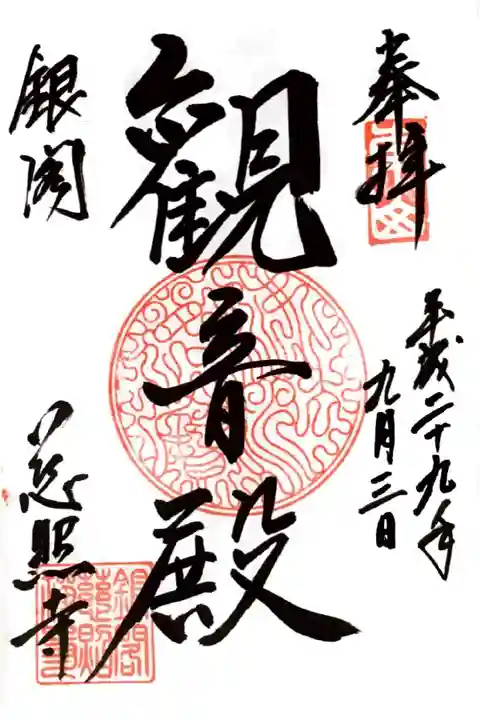 奉拝
平成二十九年
九月三日
観音殿
銀閣
慈照寺